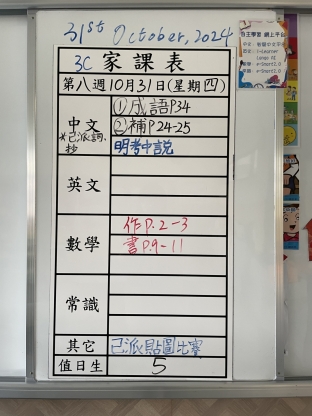 31st October, 2024
3C 家課表
第八週10月31日(星期四)
中文
*已派詞、
抄
①成語P34
②補P24-25
明考中説
英文
數學
作P.2-3
書P.9-11
常識
其它
已派貼圖比賽
值日生
5
自主學習 網上平台